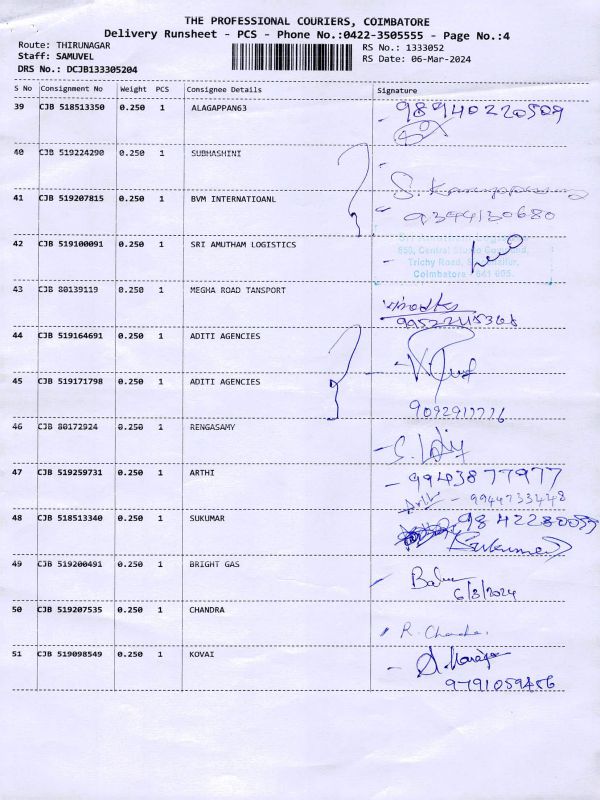 THE PROFESSIONAL COURIERS, COIMBATORE
Delivery Runsheet - PCS - Phone No.:0422-3505555 - Page No.:4
Route: THIRUNAGAR RS No.: 1333052
Staff: SAMUVEL RS Date: 06-Mar-2024
DRS No.: DCJB133305204
S No Consignment No Weight PCS Consignee Details Signature
39 CJB 518513350 0.250 1 ALAGAPPAN63
40 CJB 519224290 0.250 1 SUBHASHINI
41 CJB 519207815 0.250 1 BVM INTERNATIOANL
9344130680
42 CJB 519100091 0.250 1 SRI AMUTHAM LOGISTICS
Trichy Road,
Coimbatore - 641 005.
43 CJB 80139119 0.250 1 MEGHA ROAD TANSPORT
44 CJB 519164691 0.250 1 ADITI AGENCIES
45 CJB 519171798 0.250 1 ADITI AGENCIES
46 CJB 80172924 0.250 1 RENGASAMY
47 CJB 519259731 0.250 1 ARTHI
9943877977
9944733448
48 CJB 518513340 0.250 1 SUKUMAR
Sukumar
49 CJB 519200491 0.250 1 BRIGHT GAS
6/3/2024
50 CJB 519207535 0.250 1 CHANDRA
R. Chandra.
51 CJB 519098549 0.250 1 KOVAI
9791059456